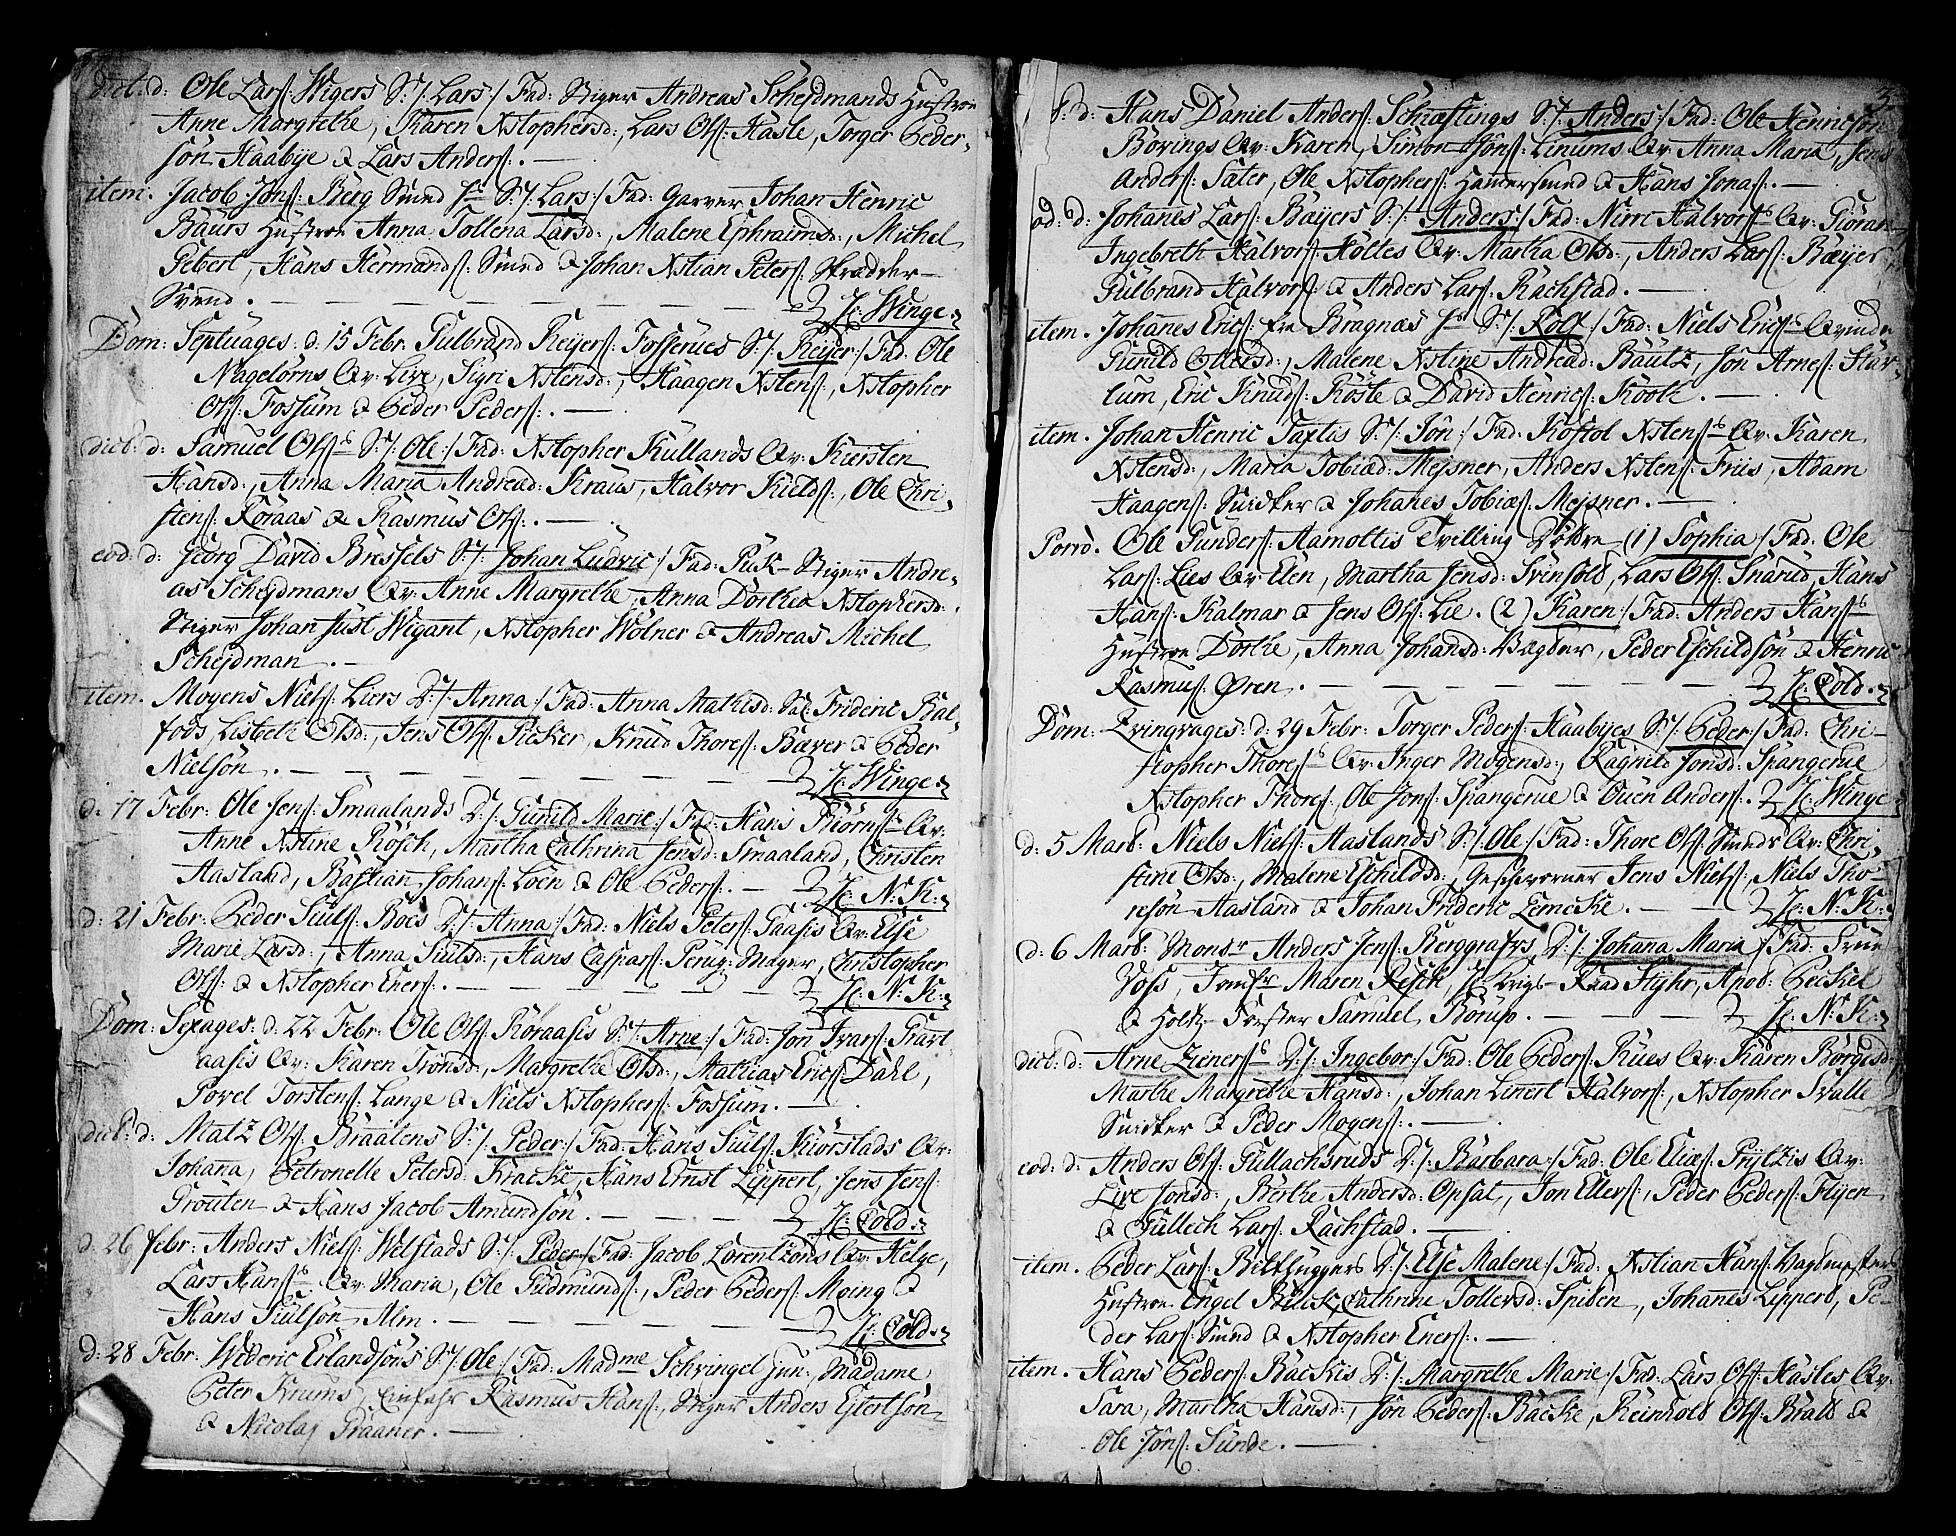 dict: d: Ole Lars: Wigers S:/: Lars:/ Fad: Stiger Andreas Schejdmands Hustroe
Anne Margrethe, Karen Xstophersd:, Lars Ols: Hasle, Torger Peder-
sön Haabÿe & Lars Anders:. —
item. Jacob Jöns: Berg Smed S:/: Lars:/ Fad: Garver Johan Henric
Baürs Hustroe Anna Tollena Larsd:, Malene Ephraimsd:, Michel
Gebert, Hans Hermands: Smed & Johan Xstian Peters: Skrædder-
Svend. — H: Winge
Dom: Septuages: d: 15 Febr: Gulbrand Reijers: Fosserües S:/: Reijer:/ Fad: Ole
Nagelörns Qv: Live, Sigri Xstensd:, Haagen Xstens:, Xstopher
Ols: Fossum & Peder Peders:. —
dict: d: Samuel Ols: S:/: Ole:/ Fad: Xstopher Küllands Qv: Kiersten
Hansd:, Anna Maria Andread: Kraus, Halvor Kields:, Ole Chri-
stens: Röraas & Rasmus Ols:. —
eod: d: Georg David Bressels S:/: Johan Ludvic:/ Fad: Püsk-Stiger Andre-
as Schejdmans Qv: Anne Margrethe, Anna Dorthea Xstophersd:
Stiger Johan Just Wigant, Xstopher Wölner & Andreas Michel
Schejdman. —
item. Mogens Niels: Liers D:/: Anna:/ Fad: Anna Mathisd: Sal: Frideric Bal-
fods, Lisbeth Olsd:, Jens Ols: Picker, Knud Thores: Bæver & Peder
Nielsön. — H: Winge
d: 17 Febr: Ole Jens: Smaalands D:/: Gunild Marie:/ Fad: Hans Biörns: Qv:
Anne Xstine Rösch, Martha Cathrina Jensd: Smaaland, Christen
Aasland, Bastian Johans: Loen & Ole Peders:. — H: N: K:
d: 21 Febr: Peder Siuls: Boes D:/: Anna:/ Fad: Niels Peters: Gaasis Qv: Else
Marie Larsd:, Anna Siulsd:, Hans Caspars: Peruq: Mager, Christopher
Ols: & Xstopher Eners:. — H: N: K:
Dom: Sexages: d: 22 Febr: Ole Ols: Röraasis S:/: Arne:/ Fad: Jon Ivars: Gravl
aasis Qv: Karen Tronsd:, Margrethe Olsd:, Mathias Erics: Dahl,
Povel Torstens: Lange & Niels Xstophers: Fossum. —
dict: d: Matz Ols: Braatens S:/: Peder:/ Fad: Hans Siuls: Kiörstads Qv:
Johana, Petronelle Petersd: Kracke, Hans Ernst Lippert, Jens Jens:
Grouten & Hans Jacob Amundsön. — H: Cold
d: 26 febr: Anders Niels: Welstads S:/: Peder:/ Fad: Jacob Lorentzons Qv: Helge,
Lars Hans: Qv: Maria, Ole Gudmunds:, Peder Peders: Moing &
Hans Siulsön Alm. — H: Cold
d: 28 Febr: Wederic Erlandsöns S:/: Ole:/ Fad: Madme Schvingel jun:, Madame
Peter Krums, Einfahr Rasmus Hans:, Stiger Anders Ejlertsön
& Nicolaj Graaner. —
3
d: Hans Daniel Anders: Schræstings S:/: Anders:/ Fad: Ole Henricsön
Bövings Qv: Karen, Simon Jöns: Linums Qv: Anna Maria, Jens
Anders: Sater, Ole Xstophers: Hamersmed & Hans Jonas:. —
od: d: Johanes Lars: Baÿers S:/: Anders:/ Fad: Niri Halvors: Qv: Giöran
Ingebreth Halvors: Holtes Qv: Martha Olsd:, Anders Lars: Bæÿer
Gulbrand Halvors: & Anders Lars: Rachstad. —
item. Johanes Erics: fra Bragnæs S:/: Rolf:/ Fad: Niels Erics: Qvinde
Gunild Ottersd:, Malene Xstine Andread: Bäutz, Jön Arnes: Stav-
lum, Eric Knuds: Röste & David Henrics: Kooth. —
item. Johan Henric Saxlis S:/: Jön:/ Fad: Rostol Xstens: Qv: Karen
Xstensd:, Maria Tobiæd: Mejsner, Anders Xstens: Friis, Adam
Haagens: Snidker & Johanes Tobiæs: Mejsner. —
Porrò. Ole Gunders: Aamottis Tvilling Döttre (1) Sophia:/ Fad: Ole
Lars: Lies Qv: Elen, Martha Jensd: Svinsold, Lars Ols: Snarud, Hans
Hans: Kalmar & Jens Ols: Lie. (2) Karen:/ Fad: Anders Hans:
Hustroe Dorthe, Anna Johansd: Vægter, Peder Eschildsön & Henric
Rasmus: Ören. — H: Cold
Dom: Qvinqvages: d: 29 Febr: Torger Peders: Haabÿes S:/: Peder:/ Fad: Chri-
stopher Thores: Qv: Inger Mogensd:, Ragnild Jonsd: Spangerue
Xstopher Thores:, Ole Jons: Spangerue & Ouen Anders:. H: Winge
d: 5 Mart: Niels Niels: Aaslands S:/: Ole:/ Fad: Thore Ols: Smeds Qv: Chri-
stine Olsd:, Malene Eschildsd:, Geschworner Jens Niels:, Niels Tho-
resön Aasland & Johan Frideric Lemcke. — H: N: K:
d: 6 Mart: Monsr Anders Jens: Berggrafvs D:/: Johana Maria:/ Fad: Frue
Voss, Jomfr Maren Resch, H: Krigs-Raad Hÿhr, Apot: Peckel
& Holtz-Forster Samuel Borup. — H: N: K:
dict: d: Arne Zieners: D:/: Ingebor:/ Fad: Ole Peders: Rues Qv: Karen Börgesd:
Marthe Margrethe Hansd:, Johan Linert Halvors:, Xstopher Svalle
Snidker & Peder Mogens:. —
eod: d: Anders Ols: Gullachsruds D:/: Barbara:/ Fad: Ole Elias: Prÿtzis Qv:
Live Jonsd:, Berthe Andersd: Opsal, Jon Ellers:, Peder Peders: Flijen
& Gullech Lars: Rachstad. —
item. Peder Lars: Biltsuggers D:/: Else Malene:/ Fad: Xstian Hans: Vagtmester
Hustroe Engel Bülick, Cathrine Tollersd: Spiten, Johanes Lippert, Pe-
der Lars: Smed & Xstopher Eners:. —
item. Hans Peders: Backis D:/: Margrethe Marie:/ Fad: Lars Ols: Hasles Qv:
Sara, Martha Hansd:, Jön Peders: Backe, Reinhold Ols: Bratt &
Ole Jöns: Sunde. —